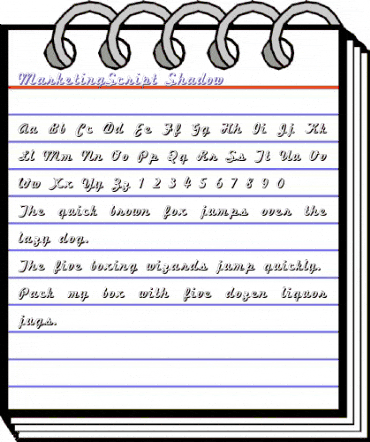 MarketingScript Shadow
Aa Bb Cc Dd Ee Ff Gg Hh Ii Jj Kk
Ll Mm Nn Oo Pp Qq Rr Ss Tt Uu Vv
Ww Xx Yy Zz 1 2 3 4 5 6 7 8 9 0
The quick brown fox jumps over the
lazy dog.
The five boxing wizards jump quickly.
Pack my box with five dozen liquor
jugs.